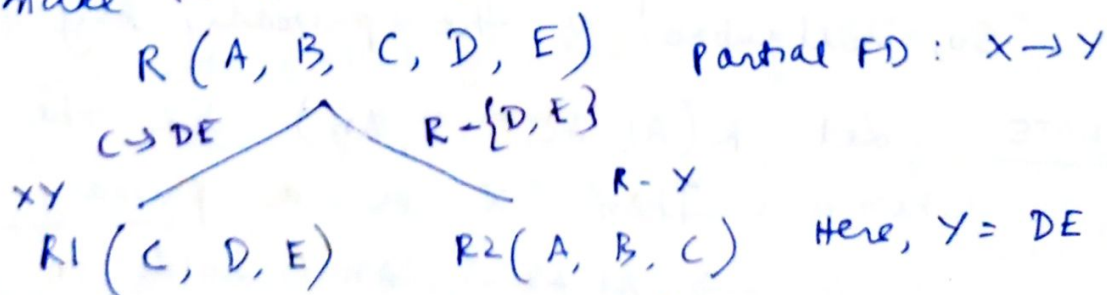 R (A, B, C, D, E) Partial FD : X → Y
C → DE R - {D, E}
XY R - Y
R1 (C, D, E) R2 (A, B, C) Here, Y = DE